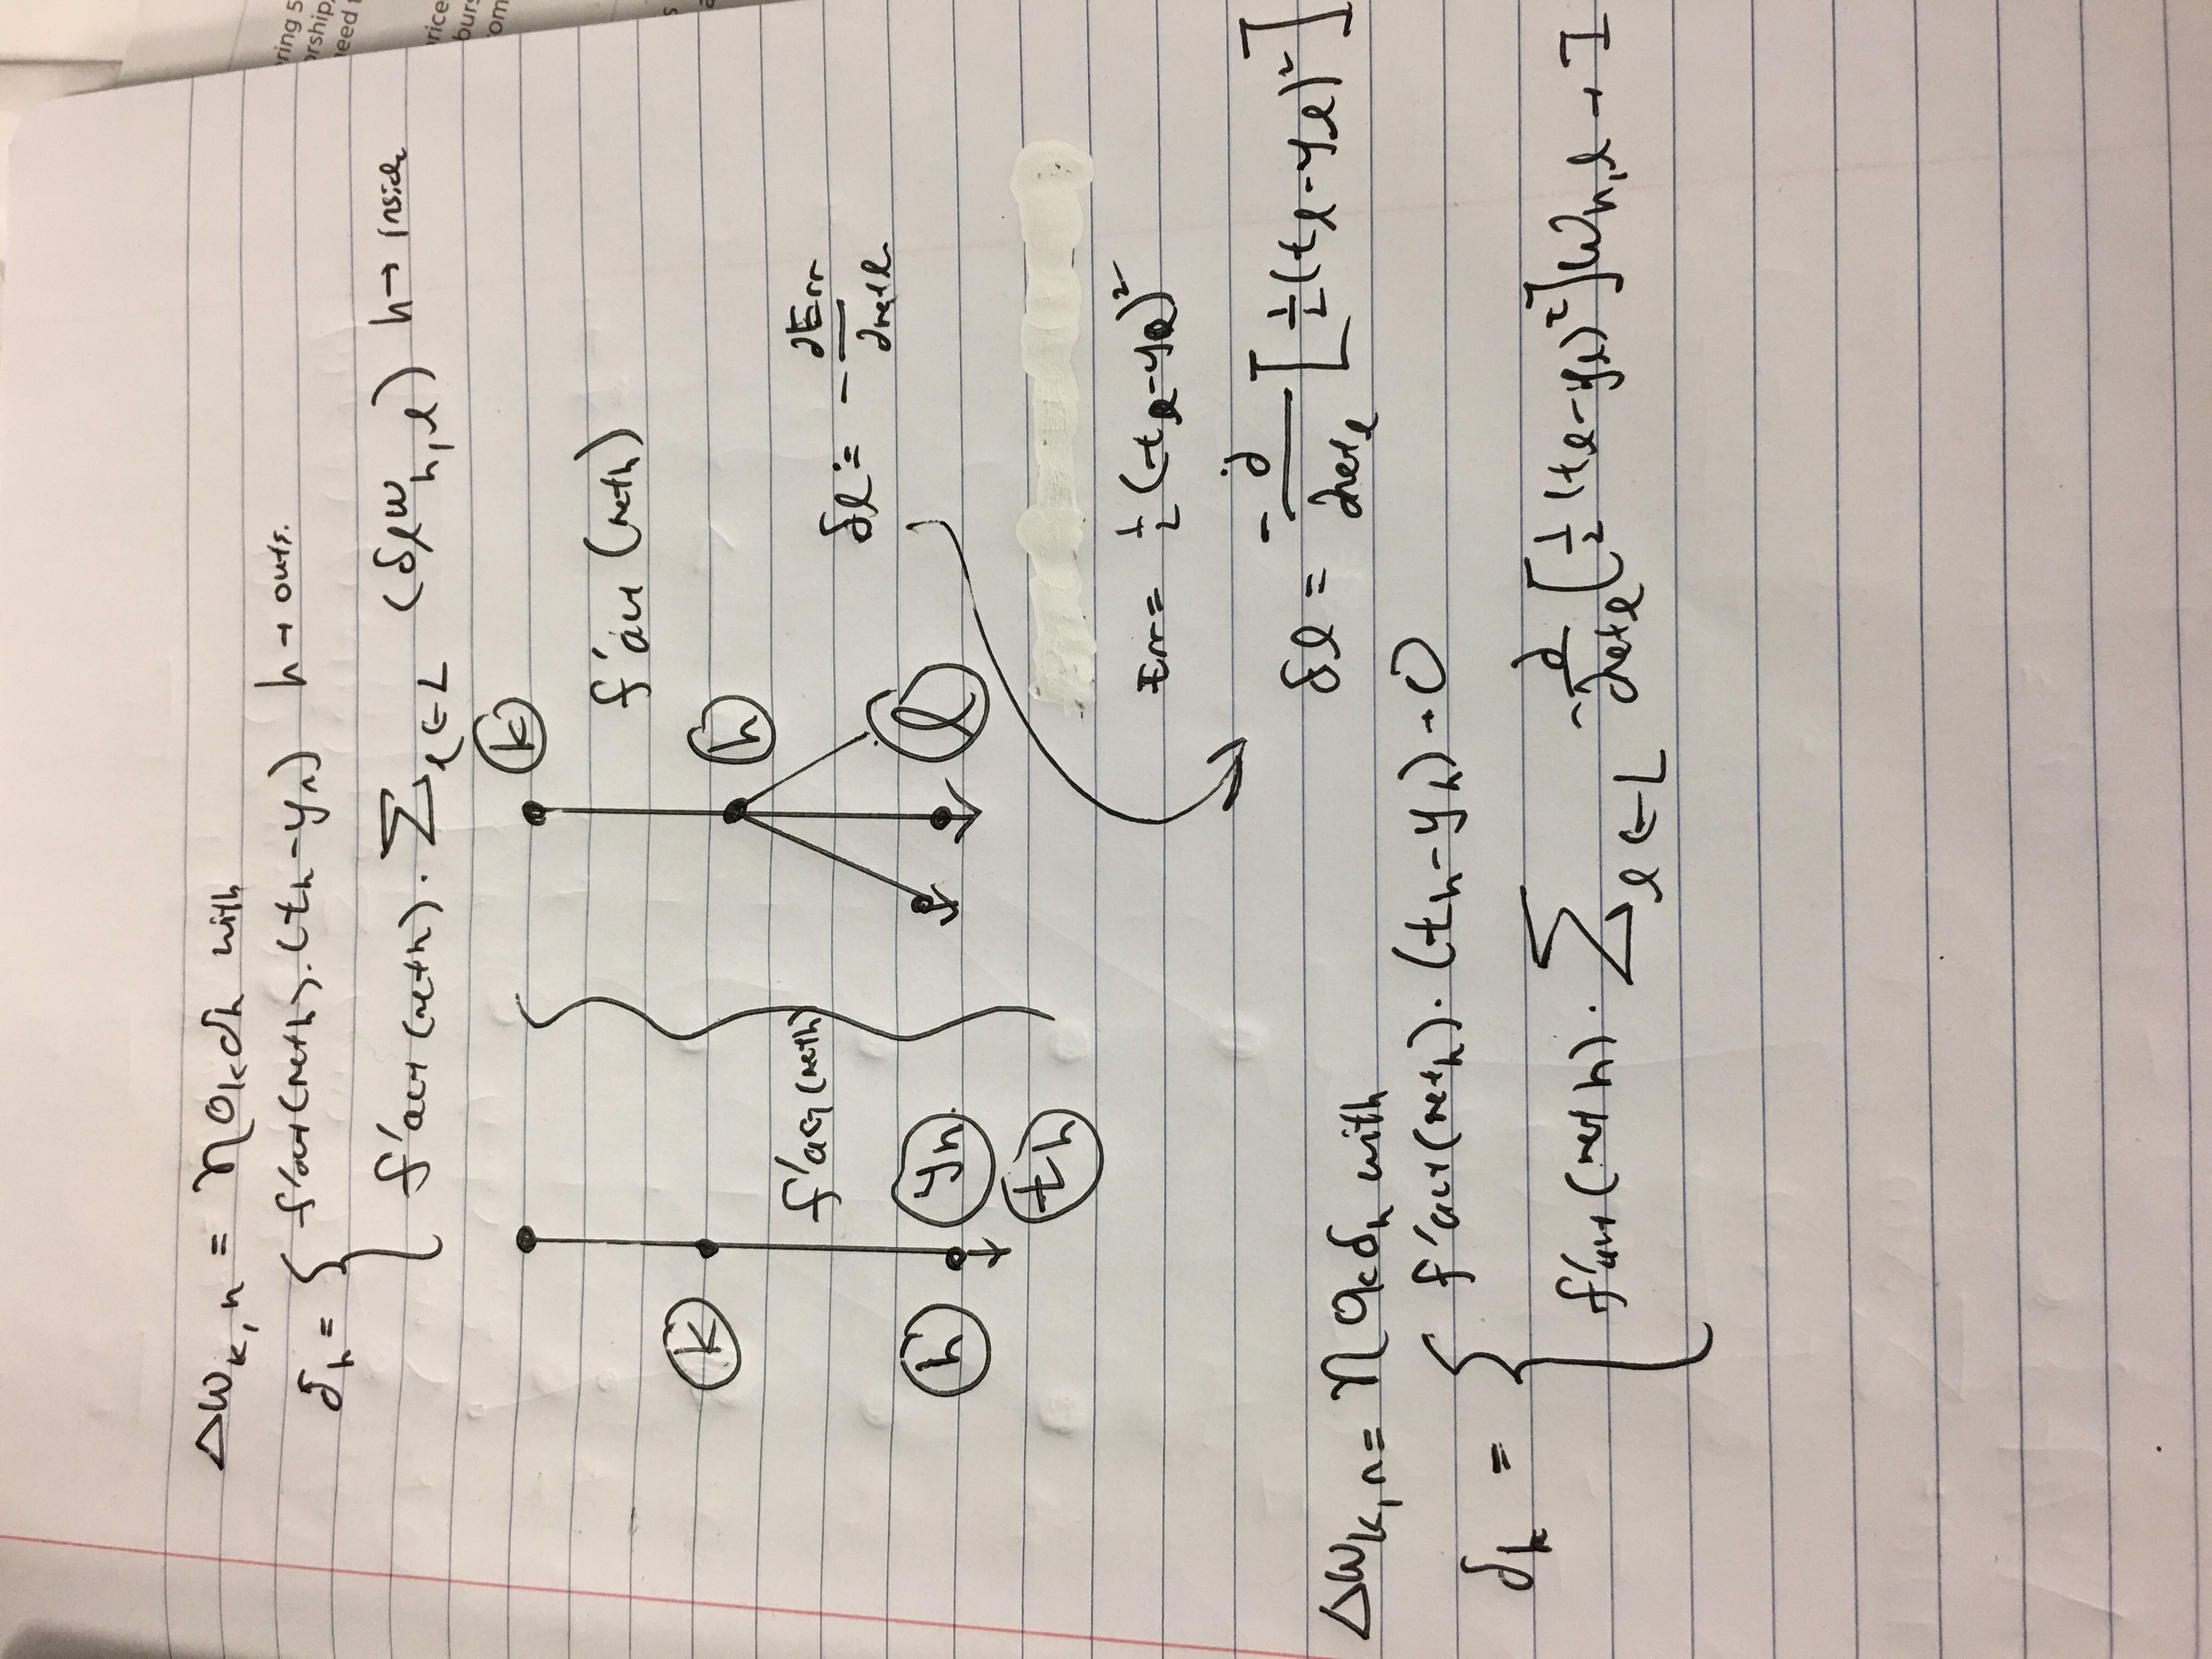 Δw_{k,h} = η o_k δ_h with
δ_h = { f'act(net_h).(t_h - y_h) h → outs.
f'act(net_h) . Σ_{l∈L} (δ_l w_{h,l}) h → inside
k
f'act(net_h)
k
h
f'act(net_h)
δ_l = - ∂Err / ∂net_l
h
y_h
l
t_h
Err = 1/2 (t_l - y_l)²
δ_l = - ∂/∂net_l [ 1/2 (t_l - y_l)² ]
Δw_{k,h} = η o_k δ_h with
δ_h = { f'act(net_h) . (t_h - y_h) → O
f'act(net_h) . Σ_{l∈L} - ∂/∂net_l [ ( 1/2 (t_l - y_l)² ] w_{h,l} → I
ring 5
orship,
need
rice
burs
om